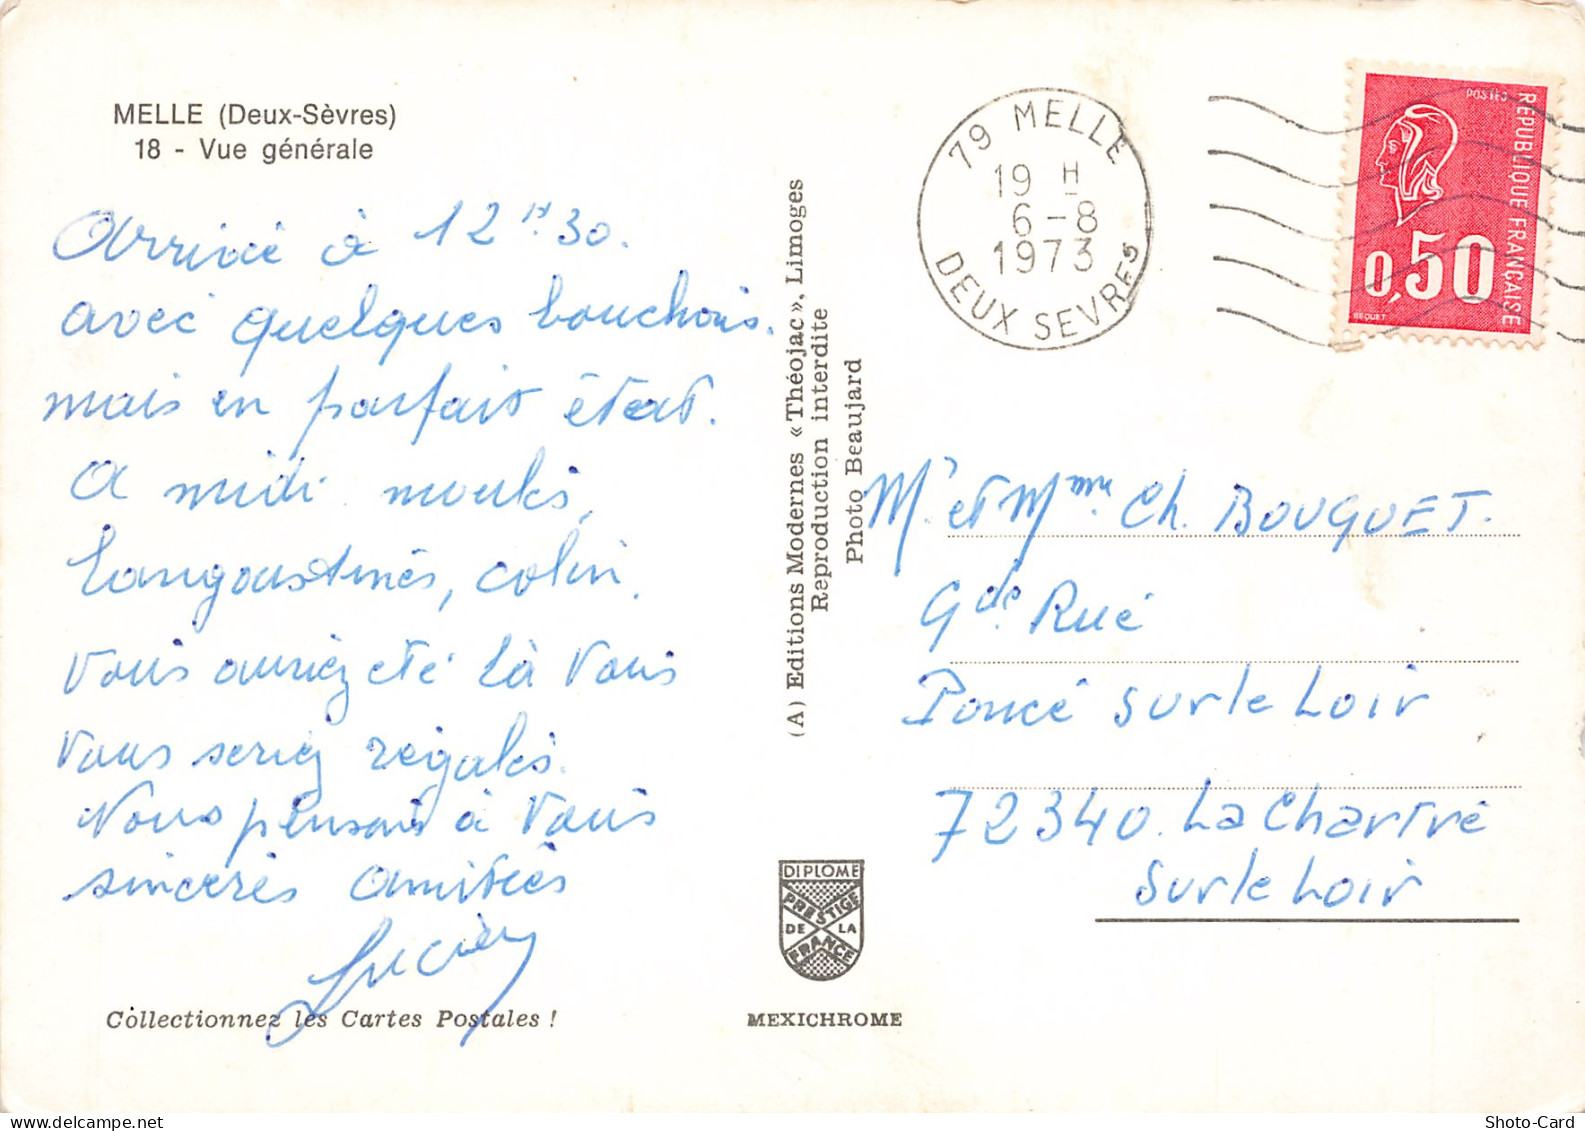 MELLE (Deux-Sèvres)
18 - Vue générale
Arrivé à 12 H 30.
avec quelques bouchons.
mais en parfait état.
A midi moules,
langoustines, colin.
Vous auriez été là vous
vous seriez régalés.
Nous pensons à vous
sincères amitiés
Lucien
Collectionnez les Cartes Postales !
(A) Editions Modernes « Théojac », Limoges
Reproduction interdite
Photo Beaujard
DIPLOME
PRESTIGE
DE LA
FRANCE
MEXICHROME
79 MELLE
19 H
6-8
1973
DEUX SEVRES
POSTES
REPUBLIQUE FRANÇAISE
0,50
BEQUET
Mr et Mme Ch. BOUQUET.
Gde Rue
Poncé sur le Loir
72340. La Chartre
sur le Loir
Shoto-Card